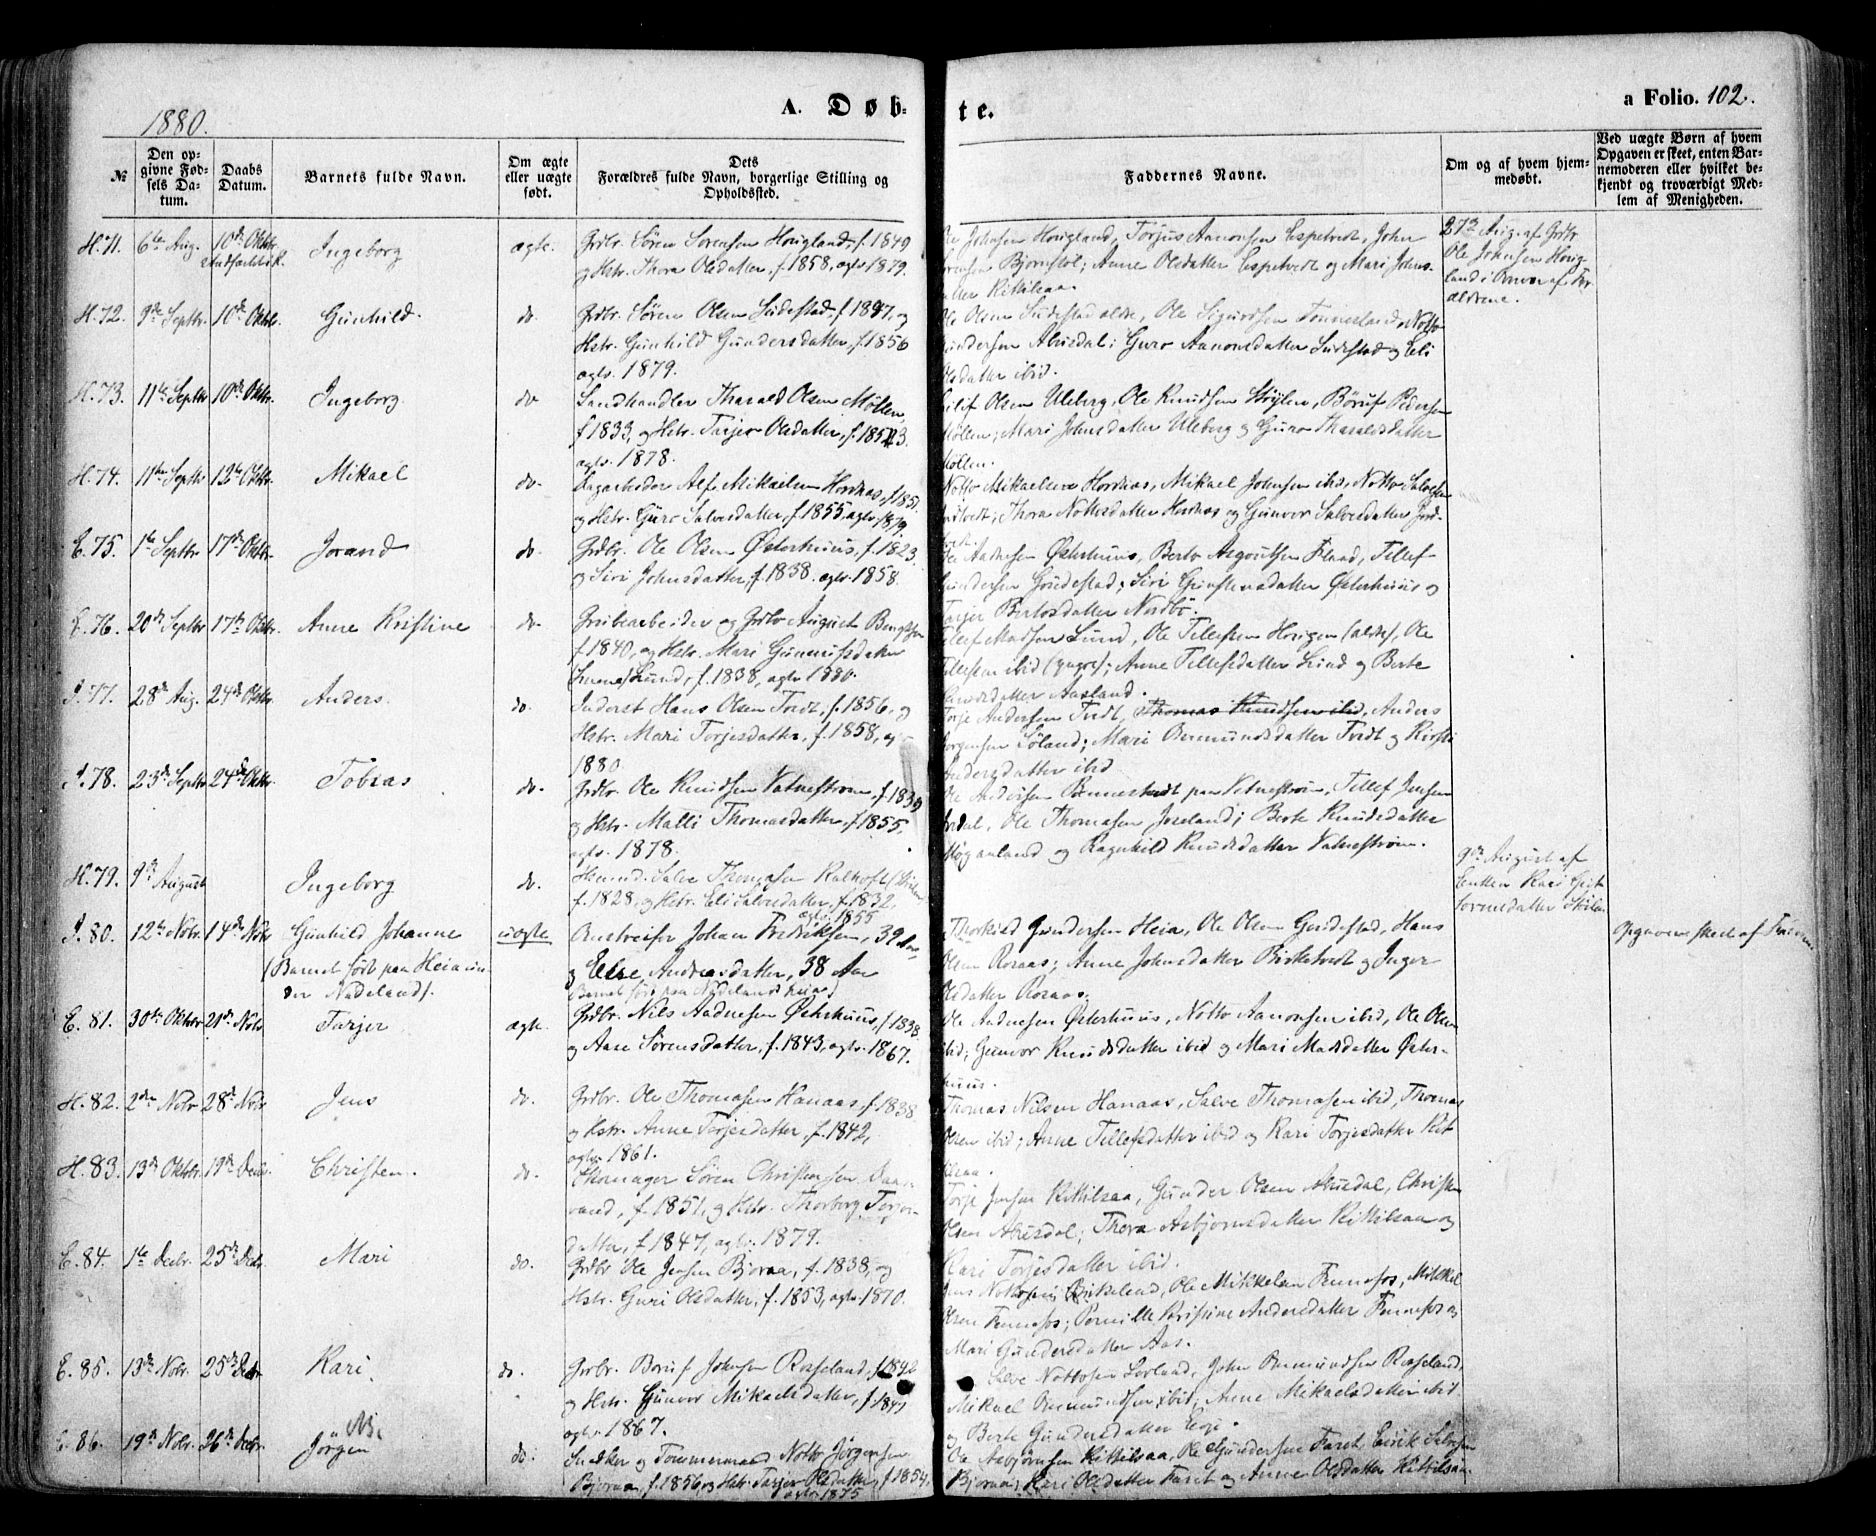 1880.
A. Døb-
te.
a Folio. 102.
№
Den op-
givne Fød-
sels Da-
tum.
Daabs
Datum.
Barnets fulde Navn.
Om ægte
eller uægte
født.
Dets
Forældres fulde Navn, borgerlige Stilling og
Opholdssted.
Faddernes Navne.
Om og af hvem hjem-
medøbt.
Ved uægte Børn af hvem
Opgaven er skeet, enten Bar-
nemoderen eller hvilket be-
kjendt og troværdigt Med-
lem af Menigheden.
H. 71. 6te Aug. 10de Oktbr. Ingeborg ægte. Grdbr. Sören Sörensen Hougland, f. 1849
og Hstr. Thora Olsdatter, f. 1858, agtv. 1879.
Johnsen Hougland, Torjus Aanonsen Espetvedt, John
Bjornstöl; Anne Olsdatter Espetvedt og Mari Johns-
Kittilsaa.
27de Aug. af Grdbr.
Ole Johnsen Houg-
land i Onvær af For-
ældrene.
H. 72. 9de Septbr. 10de Oktbr. Gunhild. do. Grdbr. Sören Olsen Sudestad, f. 1847, og
Hstr. Gunhild Gundersdatter, f. 1856
agtv. 1879.
Ole Olsen Sudestad ældre, Ole Sigurdsen Tonnesland, Notto
Gundersen Abusdal; Guro Aanonsdatter Sudestad og Eli
Olsdatter ibid.
H. 73. 11te Septbr. 10de Oktbr. Ingeborg. do Landhandler Tharald Olsen Möllen,
f. 1833, og Hstr. Tarjer Olsdatter, f. 1853.
agtv. 1878.
Olsen Uleberg, Ole Knudsen Skylen, Böruf Pedersen
Möllen; Mari Johnsdatter Uleberg og Guro Tharaldsdatter
Möllen.
H. 74. 11te Septbr. 12te Oktbr. Mikael do. Alf Mikaelsen Hordnas, f. 1851,
og Hstr. Guro Salvesdatter, f. 1855, agtv. 1879.
Notto Mikaelsen Hordnas, Mikael Johnsen ibid, Notto Salvesen
Thora Nottosdatter Hordnas og Gunvor Salvesdatter
E. 75. 1te Septbr. 17de Oktbr. Jorand do. Grdbr. Ole Olsen Østerhuus, f. 1823.
og Siri Johnsdatter, f. 1838. agtv. 1858.
Aadnesen Østerhuus, Berto Asgoutsen Flaad, Tellef
Gundersen Gendestad; Siri Gunstensdatter Østerhuus og
Tarjer Bertosdatter Nordbö.
E. 76. 20de Septbr. 17de Oktbr. Anne Kristine do. Grubearbeider og Grdbr. August Bengtsen
f. 1840, og Hstr. Mari Gunnufsdatter
Lund, f. 1838, agtv. 1880.
Tellef Madsen Lund, Ole Tellefsen Hougen (ældre), Ole
Tellefsen ibid (yngre); Anne Tellefsdatter Lund og Berte
Aasland.
I. 77. 28de Aug. 24de Oktbr. Anders. do. Inderst Hans Olsen Tvedt, f. 1856, og
Hstr. Mari Torjesdatter, f. 1858, agtv
1880
Torje Andersen Tvedt, Thomas Knudsen ibid, Anders
Jörgensen Söland; Mari Omundsdatter Tvedt og Kirsti
Andersdatter ibid
I. 78. 23de Septbr. 24de Oktbr. Tobias do. Grdbr. Ole Knudsen Vatnestrøm, f. 1839
og Hstr. Malli Thomasdatter, f. 1855.
agtv. 1878.
paa Vatnestrøm, Tellef Jensen
Ole Thomasen Joreland; Berte Knudsdatter
og Ragnhild Knudsdatter Vatnestrøm.
H. 79. 9de August Ingeborg do. Salve Thomasen
f. 1828, og Hstr. Eli Salvesdatter, f. 1832,
agtv. 1855
9de August af
Enken Kari
I. 80. 12te Novbr. 14de Novbr Gunhild Johanne uægte Johan Fredriksen, 39 Aar
(Barnet født paa Heia un-
der Nadeland).
og Else Andreasdatter, 38 Aar
Barnet født paa Nadelands heia)
Thorkild Gundersen Heia, Ole Olsen Gendestad, Hans
Olsen Roraas; Anne Johnsdatter Birketvedt og Inger
Olsdatter Roraas.
Opgaven skeet af
E. 81. 30te Oktbr. 21de Novbr Tarjer ægte. Grdbr. Nils Aadnesen Østerhuus, f. 1838
og Aase Sörensdatter, f. 1843, agtv. 1867.
Ole Aadnesen Østerhuus, Notto Aanonsen ibid, Ole Olsen
ibid; Gunvor Knudsdatter ibid og Mari Madsdatter Øster-
huus.
H. 82. 2den Novbr 28de Novbr Jens do. Grdbr. Ole Thomasen Hanaas, f. 1838
og Hstr. Anne Torjesdatter, f. 1842,
agtv. 1861.
Thomas Nilsen Hanaas, Salve Thomasen ibid, Thomas
Olsen ibid; Anne Tellefsdatter ibid og Kari Torjesdatter Kit-
tilsaa.
H. 83. 13de Oktbr. 19de Decbr. Christen. do. Skomager Sören Christensen
f. 1851, og Hstr. Thorborg Torjes-
datter, f. 1847, agtv. 1879.
Torje Jensen Kittilsaa, Gunder Olsen Abusdal, Christen
Olsen Abusdal; Thora Asbjornsdatter Kittilsaa og
Kari Torjesdatter ibid.
E. 84. 1te Decbr. 25de Decbr. Mari do. Grdbr Ole Jensen Bjoraa, f. 1838, og
Hstr. Guri Olsdatter, f. 1853, agtv. 1870.
Jens Nottosen Birkeland, Ole Mikkelsen Fennefos, Mikkel
Olsen Fennefos; Pernille Kristine Andersdatter Fennefos og
Mari Gundersdatter Aas.
E. 85. 13de Novbr. 25de Decbr. Kari. do. Grdbr. Boruf Johnsen Rosseland, f. 1842
og Hstr. Gunvor Mikaelsdatter, f. 1847
agtv. 1867.
Salve Nottosen Sorland, John Omundsen Rosseland,
Mikael Omundsen ibid, Anne Mikaelsdatter ibid.
og Berte Gundersdatter
E. 86. 19de Novbr. 26de Decbr. Jörgen NB. do. Snedker og Tommermand Notto Jörgensen
Bjoraa, f. 1856, og Hstr. Tarjer Olsdatter, f. 1854,
agtv. 1875
Ole Asbjörnsen Kittilsaa, Ole Gundersen Faret, Eirik Salvesen
Bjoraa; Kari Olsdatter Faret og Anne Olsdatter Kittilsaa.